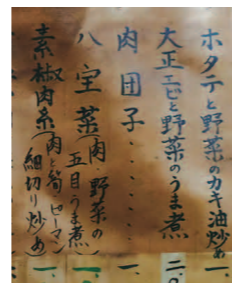 ホタテと野菜のカキ油炒め 一、
大正エビと野菜のうま煮 二、
肉団子・・・・・ 一、
八宝菜(肉・野菜の五目うま煮) 一、
素椒肉糸(肉と筍、ピーマン細切り炒め) 一、